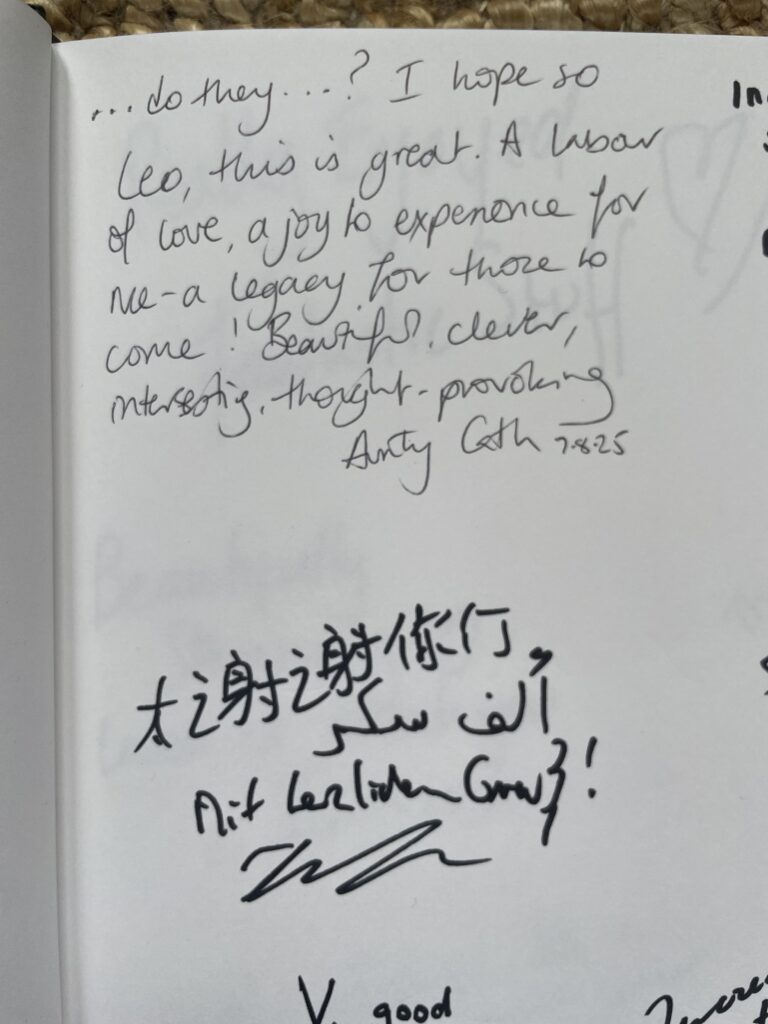 ...do they....? I hope so
Leo, this is great. A labour
of love, a joy to experience for
me - a legacy for those to
come! Beautiful, clever,
interesting, thought-provoking
Aunty Cath 7.8.25
太谢谢你们,
ألف شكر
Mit herzlichem Gruß!
V. good